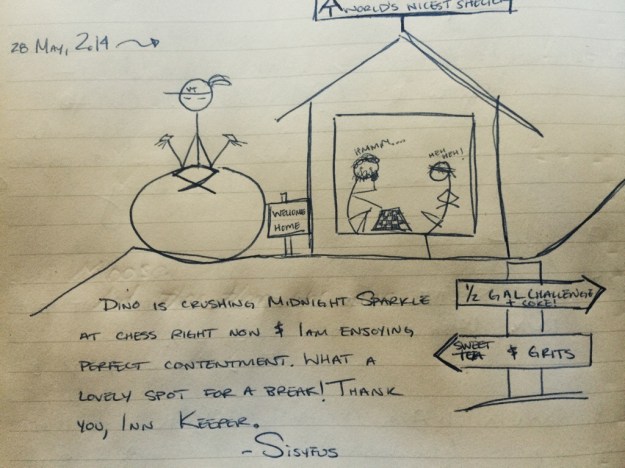 AT WORLD'S NICEST SHELTER
28 MAY, 2014
VT
HMMMM....
HEH
HEH!
WELCOME
HOME
1/2 GAL CHALLENGE
+ COKE!
SWEET
TEA & GRITS
DINO IS CRUSHING MIDNIGHT SPARKLE
AT CHESS RIGHT NOW & I AM ENJOYING
PERFECT CONTENTMENT. WHAT A
LOVELY SPOT FOR A BREAK! THANK
YOU, INN KEEPER.
- SISYFUS